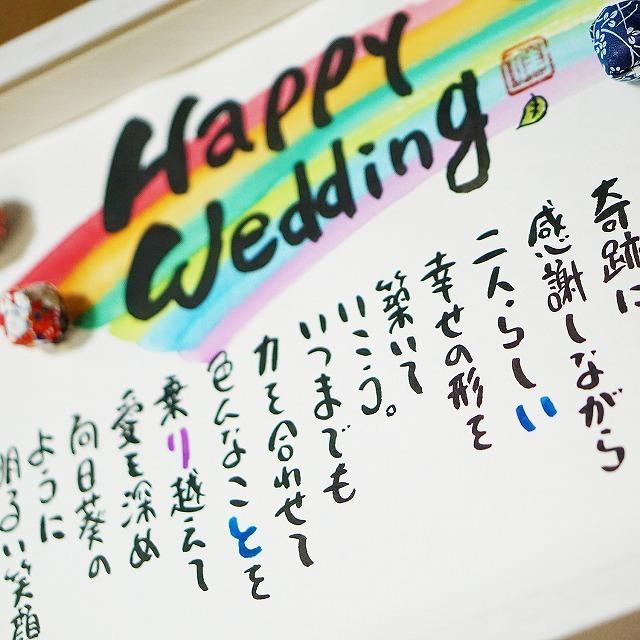 Happy
Wedding
奇跡に
感謝しながら
二人らしい
幸せの形を
築いて
いこう。
いつまでも
力を合わせて
色んなことを
乗り越えて
愛を深め
向日葵の
ように
明るい笑顔